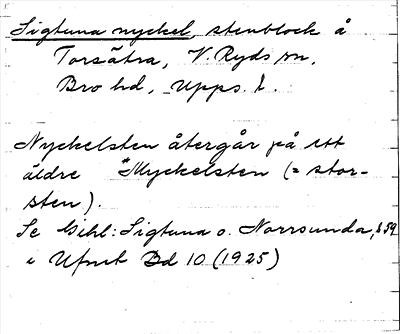 Sigtuna nyckel, stenblock å
Torsätra, V. Ryds sn.
Bro hd, Upps. l.
Nyckelsten återgår på ett
äldre *Myckelsten (= stor-
sten).
Se Gihl: Sigtuna o. Norrsunda, s 59
i Ufmt Bd 10 (1925)